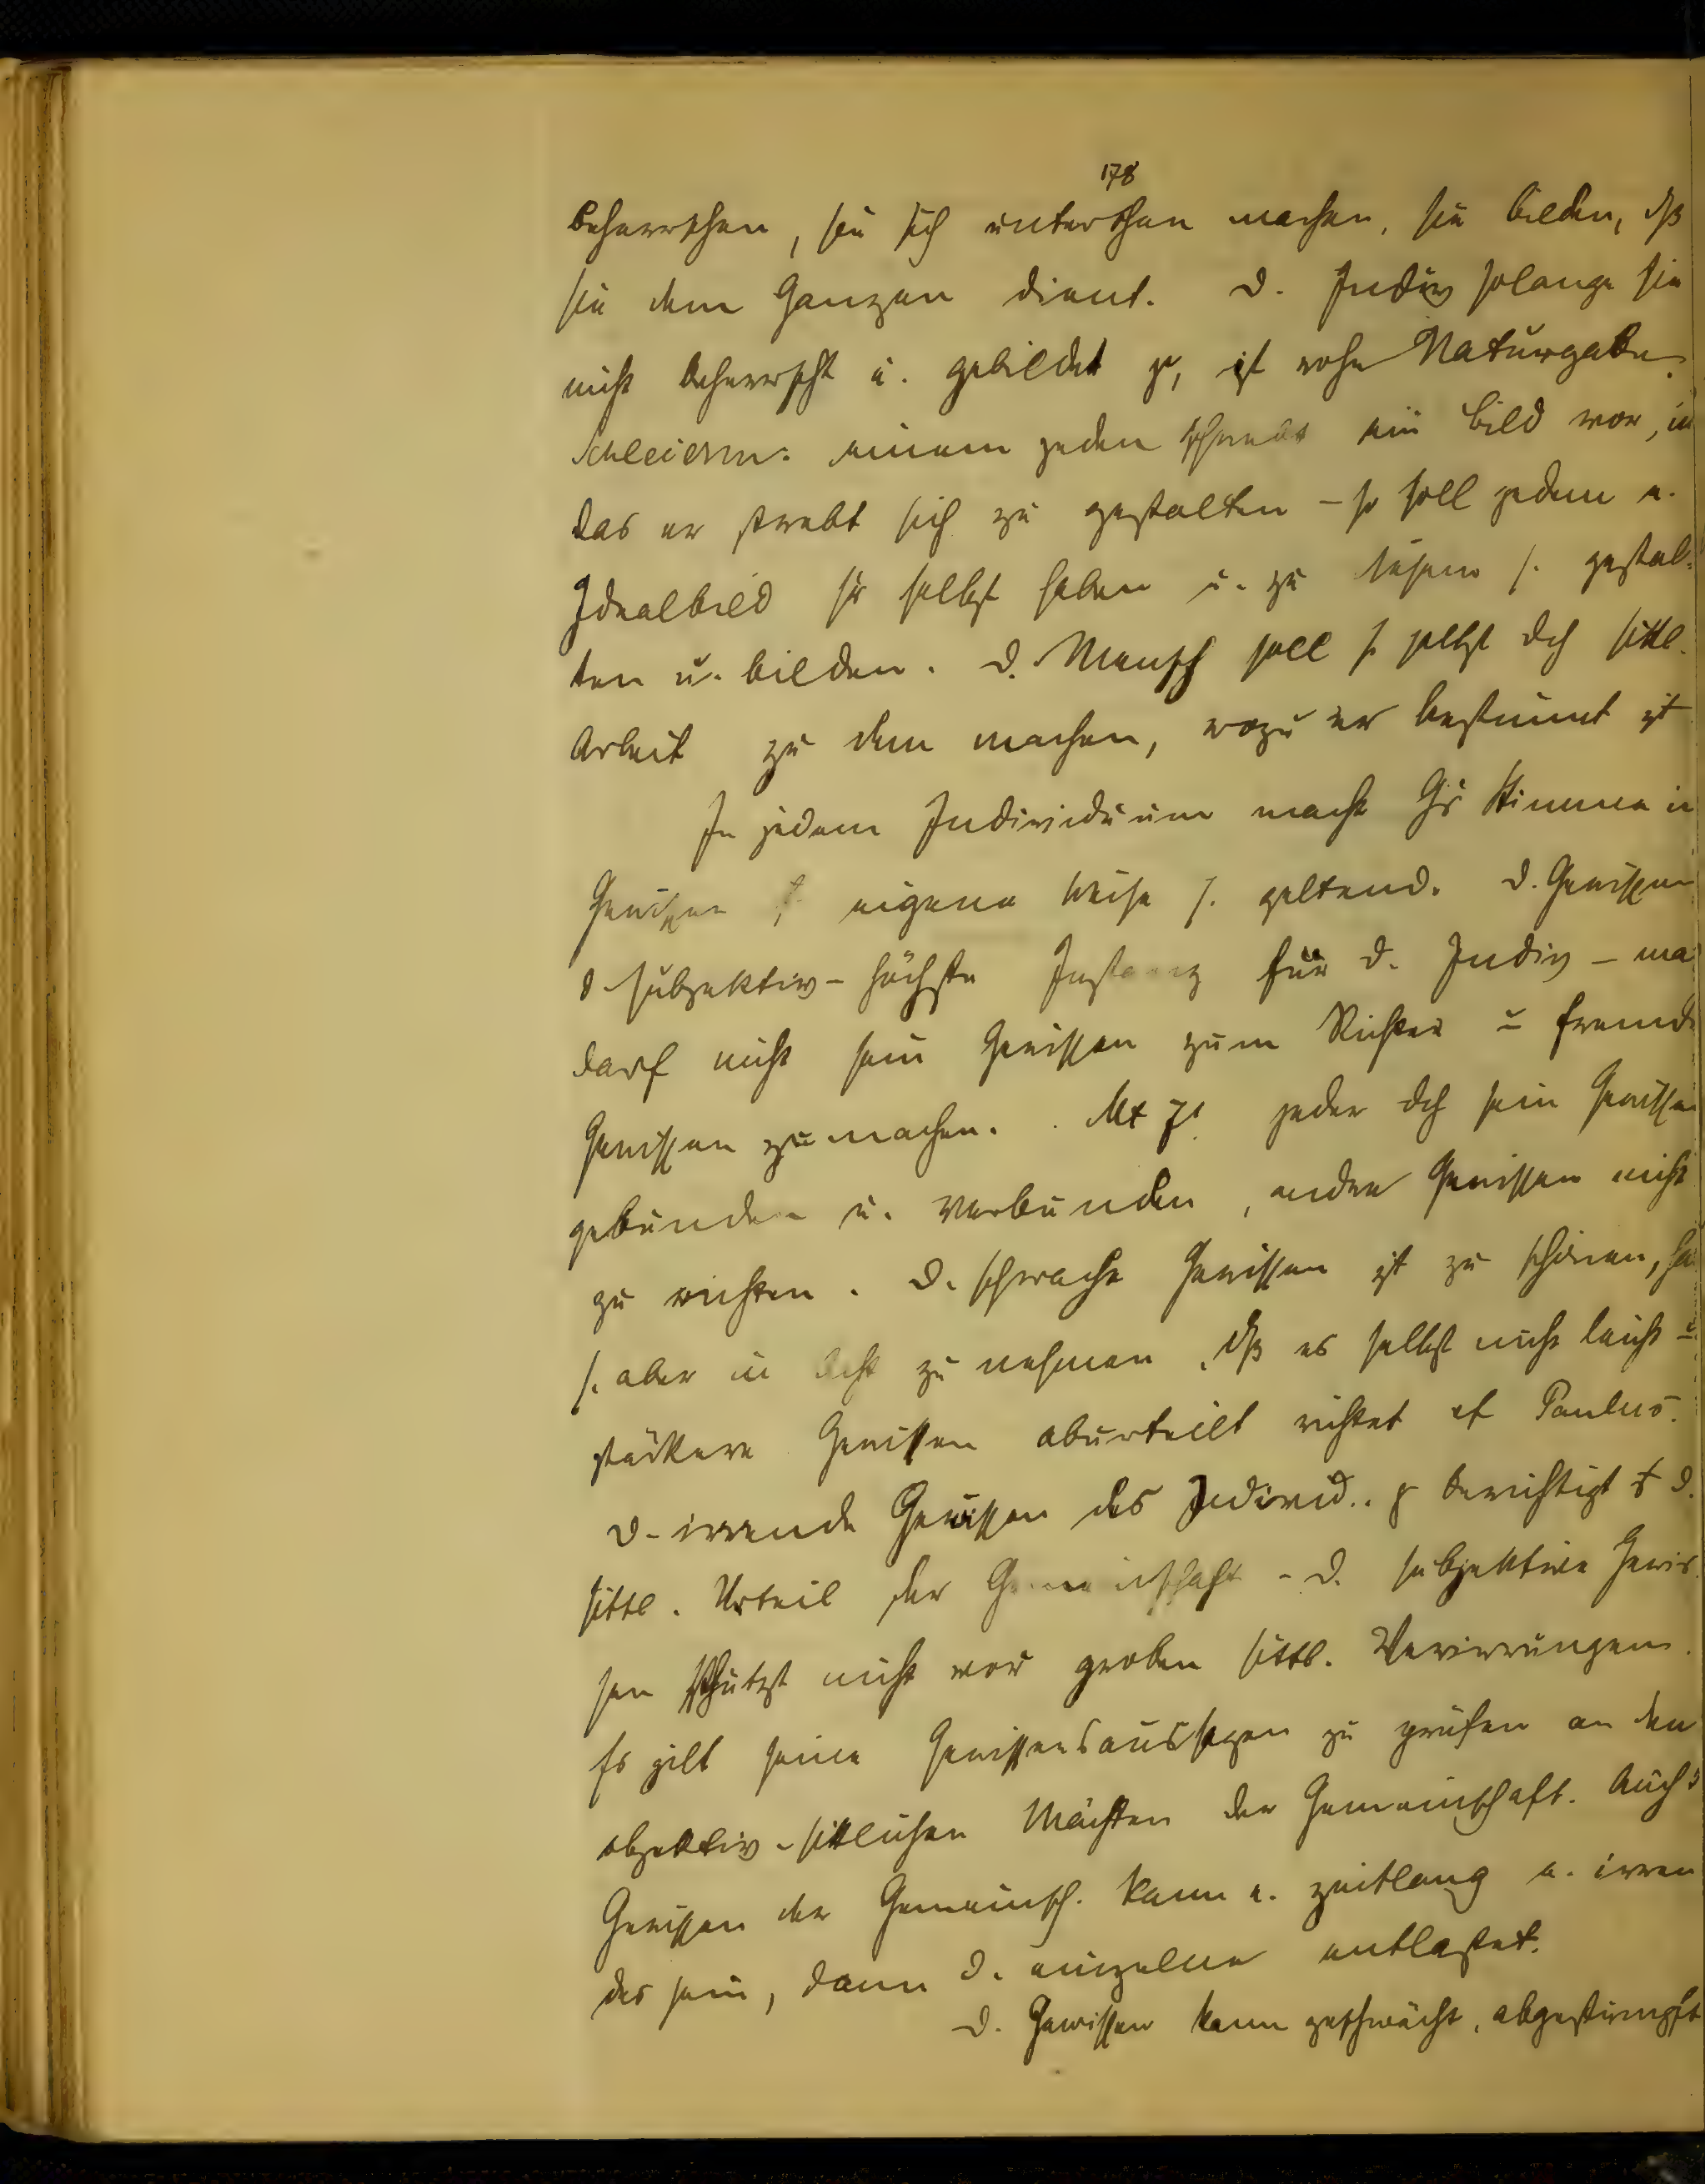 178
beherrschen, sie sich unterthan machen, sie bilden, dß
sie dem Ganzen dient. D. Indiv solange sie
nicht beherrscht u. gebildet ist rohe Naturgabe.
Schleierm: einem jeden schwebt ein Bild vor, in
das er strebt sich zu gestalten – so soll jedem e.
Idealbild selbst haben u. zu s. gestal-
ten u. bilden. D. Mensch soll s. selbst dch sittl.
Arbeit zu dem machen, wozu er bestimmt ist
In jedem Individuum macht Gs Stimme in
Gewissen eigene Weise s. geltend. D. Gewissen
d. subjektiv-höchste Instanz für d. Indiv – ma
darf nicht sein Gewissen zum Richter fremde
Gewissen zu machen. Mt 7,1 jeder dch sein Gewissen
gebunden u. verbunden, andre Gewissen nicht
zu richten. D. schwache Gewissen ist zu schonen, ha
s. aber in Acht zu nehmen, dß es selbst nicht leicht
stärkere Gewissen aburteilt richtet cf Paulus.
D. irrende Gewissen des Individ. berichtigt d.
sittl. Urteil der Gemeinschaft - D. subjektive Gewis
sen schützt nicht vor groben sittl. Verirrungen.
Es gilt seine Gewissensaussagen zu prüfen an den
objektiv-sittlichen Mächten der Gemeinschaft. Auch d
Gewissen der Gemeinsch. kann e. zeitlang e. irren
des sein, dann d. einzelne entlastet.
D. Gewissen kann geschwächt, abgestumpft